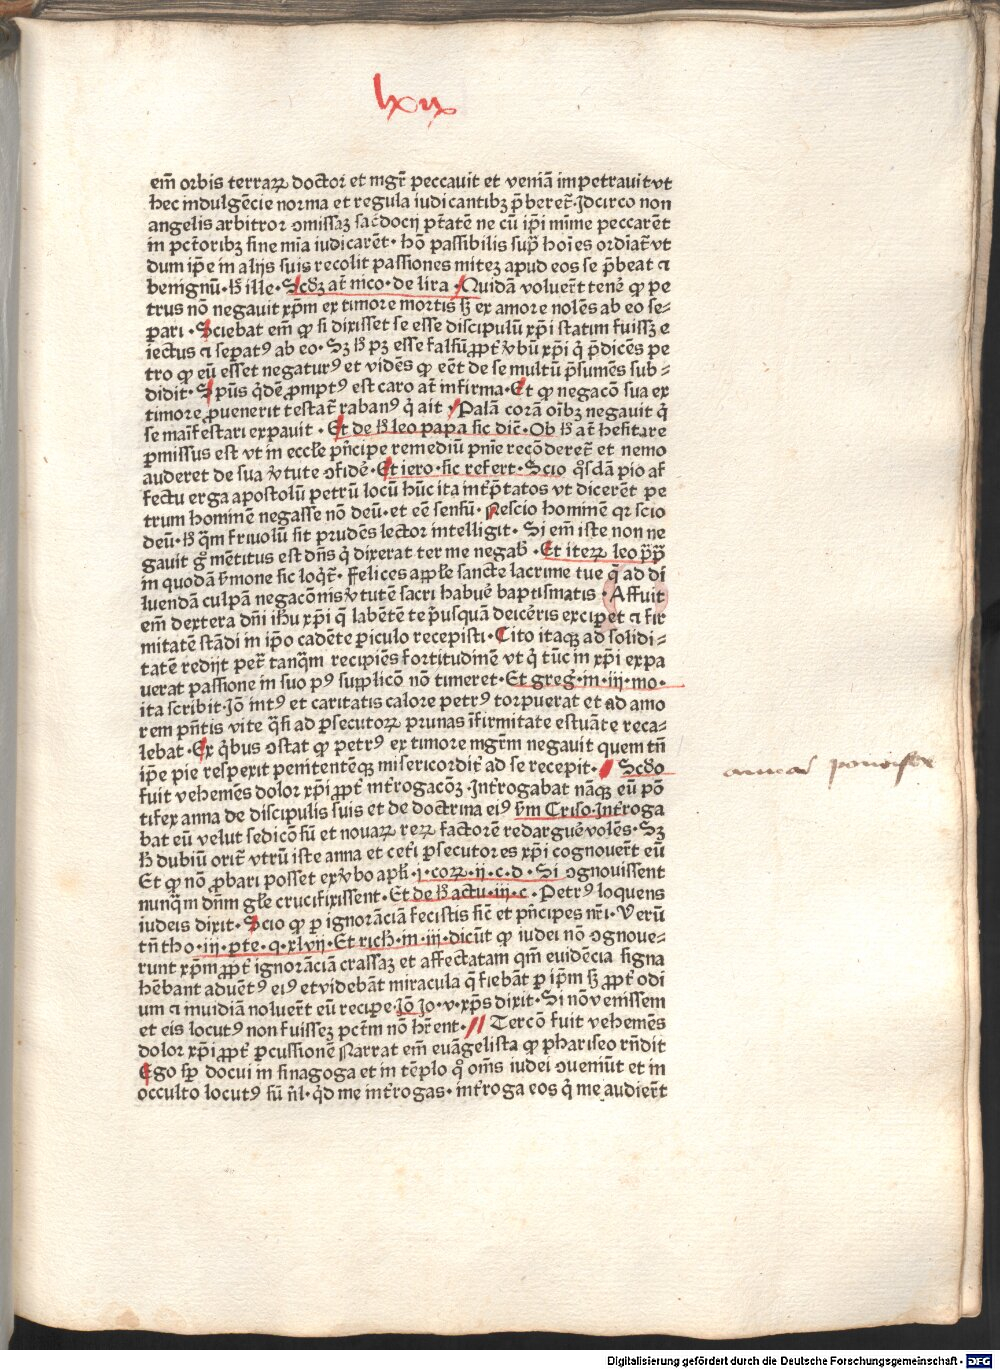 lxix
em̄ orbis terraꝝ doctor et mgr̄ peccavit et veniā impetravit vt
hec indulgēcie norma et regula iudicantibꝫ p̄beret̄· Idcirco non
angelis arbitror ꝯmissaꝫ sac̄docij ptātē ne cū ip̄i mīme peccarēt
in pctōribꝫ sine mīa iudicarēt· hō passibilis sup̄ hoīes ordiat̄ vt
dum ip̄e in alijs suis recolit passiones miteꝫ apud eos se p̄beat ⁊
benignū· H̄ ille· Scd̄ꝫ at̄ nico· de lira · Quidā voluert̄ tenē ꝙ pe
trus nō negauit xp̄m ex timore mortis sꝫ ex amore nolēs ab eo se⸗
pari · Sciebat em̄ ꝙ si dixisset se esse discipulū xp̄i statim fuissꝫ e
iectus ⁊ sepatꝰ ab eo· Sꝫ h̄ pꝫ esse falsū ꝓpt̄ v̄bū xp̄i q̇ p̄dicēs pe
tro ꝙ eū esset negaturꝰ et vidēs ꝙ eēt de se multū p̄sumēs sub⸗
didit· Sp̄us q̇dē ꝓmptꝰ est caro at̄ infirma· Et ꝙ negacō sua ex
timore ꝓuenerit testat̄ rabanꝰ q̇ ait · Palā corā oībꝫ negauit q̇
se maīfestari expauit · Et de h̄ leo papa sic diē· Ob h̄ at̄ hesitare
ꝑmissus est vt in eccl̄e p̄ncipe remediū pn̄ie recōderet̄ et nemo
auderet de sua v̄tute ꝯfidē· Et iero· sic refert· Scio qͦsdā pio af
fectu erga apostolū petrū locū hūc ita int̄p̄tatos vt dicerēt pe
trum hominē negasse nō deū· et eē sensū· Nescio hominē qꝛ scio
deū· H̄ q̄m friuolū sit prudēs lector intelligit· Si em̄ iste non ne
gauit gͦ mētitus est dn̄s q̇ dixerat ter me negab̄ · Et iteꝝ leo p̄p̄
in quodā s̄mone sic loq̄t̄· Felices ap̄l̄e sancte lacrime tue q̄ ad di
luendā culpā negacōnis v̄tutē sacri habuē baptismatis · Affuit
em̄ dextera dn̄i ih̄u xp̄i q̄ labētē te p̄usquā deiceris exciꝑet ⁊ fir
mitatē stādi in ip̄o cadēte ꝑiculo recepisti· Cito itaqꝫ ad solidi⸗
tatē redijt pet̄ tanq̄m recipiēs fortitudinē vt q̇ tūc in xp̄i expa
uerat passione in suo pꝰ supplicō nō timeret· Et greḡ· in· iij· mo·
ita scribit· Iō intꝰ et caritatis calore petrꝰ torpuerat et ad amo
rem pn̄tis vite q̄si ad ꝑsecutoꝝ prunas īfirmitate estuāte reca⸗
lebat · Ex q̇bus ꝯstat ꝙ petrꝰ ex timore mgr̄m negauit quem tn̄
ip̄e pie respexit penitentēqꝫ misericordit̄ ad se recepit· Scd̄o
fuit vehemēs dolor xp̄i ꝓpt̄ int̄rogacōꝫ· Int̄rogabat nāqꝫ eū pō
tifex anna de discipulis suis et de doctrina eiꝰ s̄m Criso· Int̄roga
bat eū velut sedicōsū et nouaꝝ reꝝ factorē redarguē volēs· Sꝫ
h̄ dubiū orit̄ vtrū iste anna et cet̄i ꝑsecutores xp̄i cognouert̄ eū
Et ꝙ nō ꝓbari posset ex v̄bo apl̄i· j· coꝝ· ij· c· d· Si ꝯgnouissent
nunq̄m dn̄m gl̄e crucifixissent· Et de h̄ actu· iij· c · Petrꝰ loquens
iudeis dixit· Scio ꝙ ꝑ ignorāciā fecistis sic̄ et p̄ncipes nr̄i· Verū
tn̄ tho· iij· ꝑte· q· xlvij· Et rich̄· in· iij· dicūt ꝙ iudei nō ꝯgnoue⸗
runt xp̄m ꝓpt̄ ignorāciā crassaꝫ et affectatam qm̄ euidēcia signa
hēbant aduentꝰ eiꝰ et videbāt miracula q̄ fiebāt ꝑ ip̄m sꝫ ꝓpt̄ odi
um ⁊ inuidiā noluerт̄ eū recipe· Iō Jo· v· xp̄s dixit· Si nō venissem
et eis locutꝰ non fuisseꝫ pctm̄ nō hr̄ent· Tercō fuit vehemēs
dolor xp̄i ꝓpt̄ ꝑcussionē Narrat em̄ euāgelista ꝙ phariseo rn̄dit
Ego sp̄ docui in sinagoga et in tēplo qͦ om̄s iudei ꝯueniūt et in
occulto locutꝰ sū n̄l· q̇d me int̄rogas· int̄roga eos q̇ me audiert̄